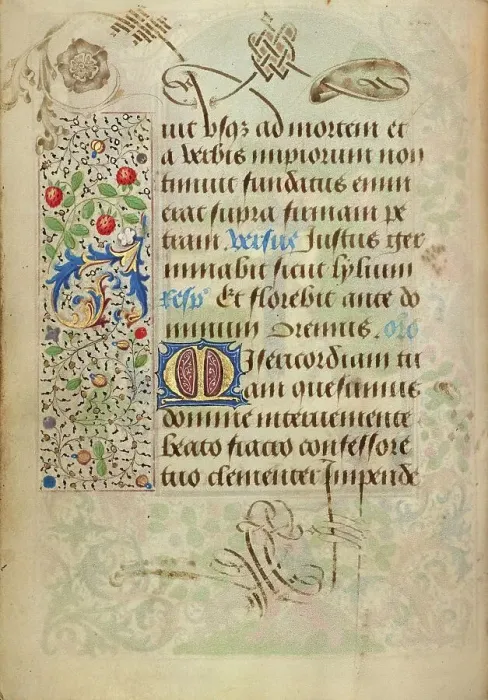 uit usq3 ad mortem et
a verbis impiorum non
timuit fundatus enim
erat supra firmam pe
tram versus Justus ger
minabit sicut lylium
resp Et florebit ante do
minum Oremus. oro
Misericordiam tu
am quesumus
domine interveniente
beato fiacro confessore
tuo clementer Impende